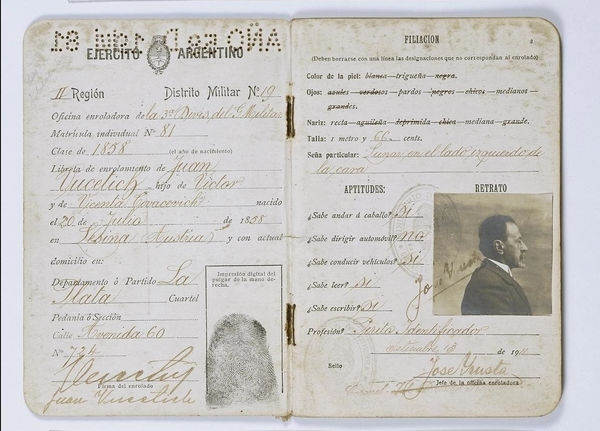 EJERCITO ARGENTINO
II Región Distrito Militar Nº 19
Oficina enroladora de la 3ª
Matrícula individual Nº 81
Clase de 1858 (el año de nacimiento)
Libreta de enrolamiento de Juan
Vucetich hijo de Victor
y de Vicenta Covacevich nacido
el 20 de Julio de 1858
en Lesina Austria y con actual
domicilio en:
Departamento ó Partido La
Plata Cuartel
Pedanía ó Sección
Calle Avenida 60
Nº 724
Firma del enrolado
Juan Vucetich
Impresión digital del
pulgar de la mano de-
recha.
FILIACION
(Deben borrarse con una línea las designaciones que no correspondan al enrolado)
Color de la piel: blanca trigueña negra.
Ojos: azules verdosos pardos negros chicos medianos
grandes.
Nariz: recta aguileña deprimida chica mediana grande.
Talla: 1 metro y 66 cents.
Seña particular: Lunar en el lado izquierdo de
la cara
APTITUDES:
RETRATO
¿Sabe andar á caballo? Si
¿Sabe dirigir automóvil? no
¿Sabe conducir vehículos? Si
¿Sabe leer? Si
¿Sabe escribir? Si
Profesión? Perito Identificador
de 191
Sello
Jefe de la oficina enroladora